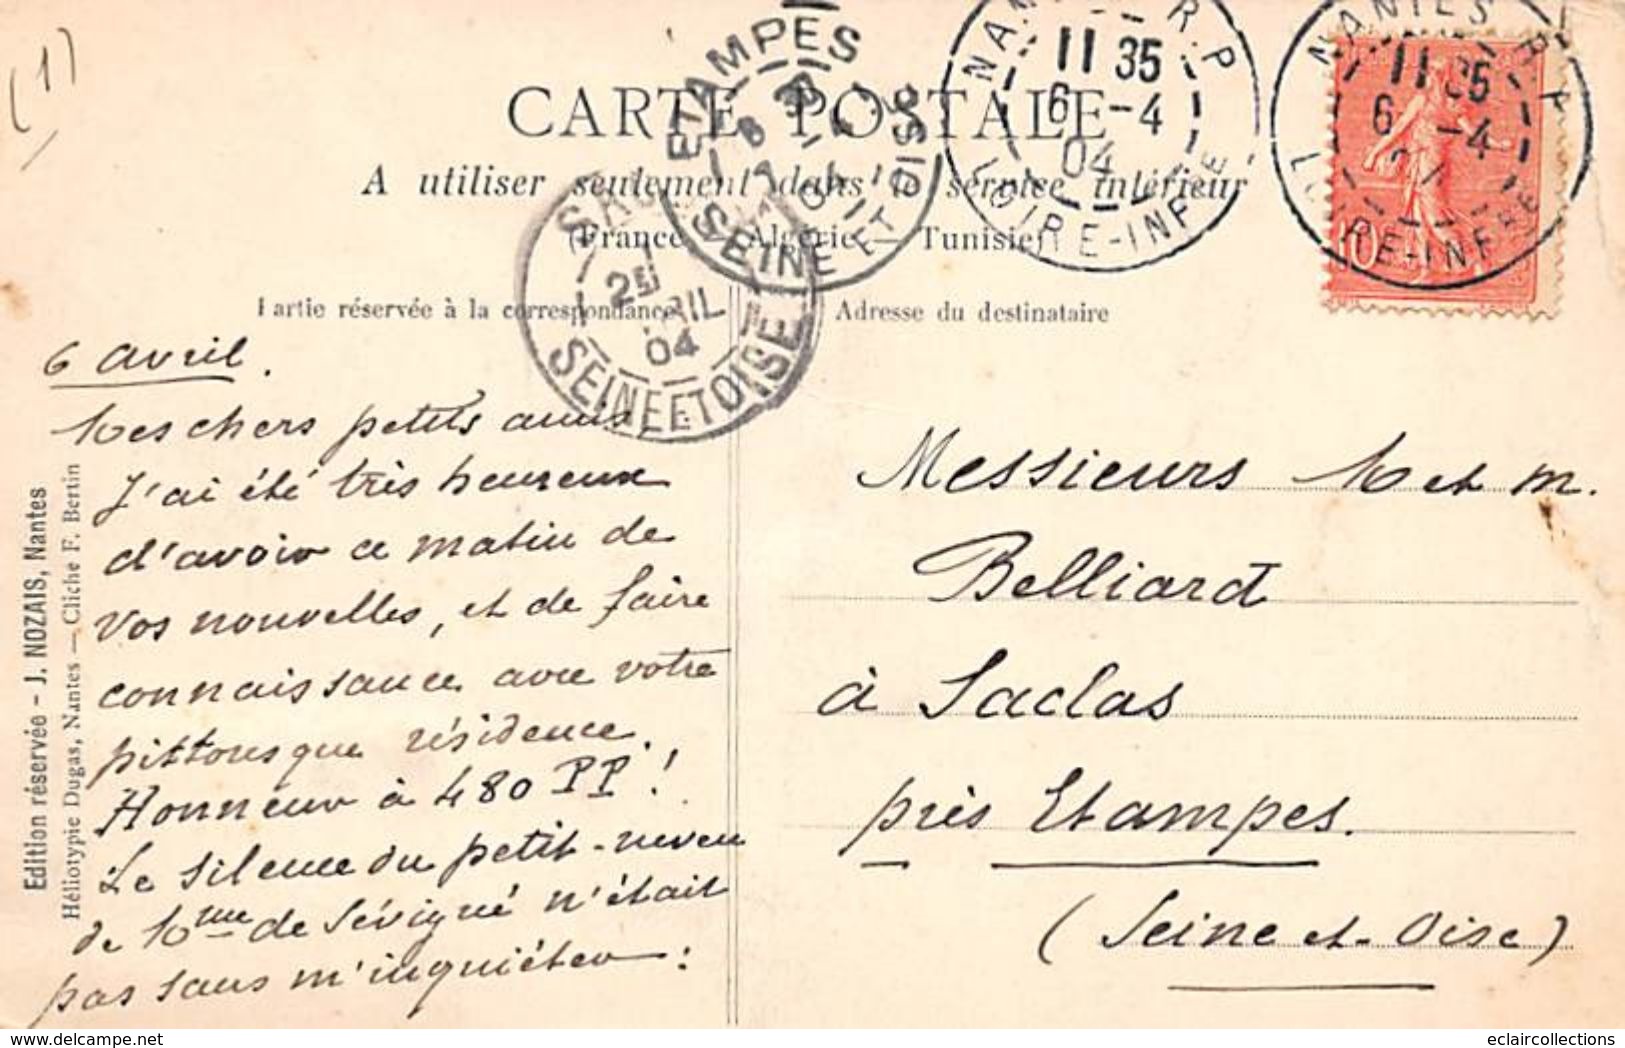 (1)
CARTE POSTALE
A utiliser seulement dans le service intérieur
(France, Algérie — Tunisie)
Partie réservée à la correspondance
Adresse du destinataire
ETAMPES
SEINE ET OISE
NANTES R.P
11 35
6 -4
04
LOIRE-INFRE
NANTES R.P
11 35
6 -4
04
LOIRE-INFRE
10
25
AVRIL
04
SEINE ET OISE
6 avril.
Mes chers petits amis,
J'ai été très heureux
d'avoir ce matin de
vos nouvelles, et de faire
connaissance avec votre
pittoresque résidence.
Honneur à 480 PP !
Le silence du petit-neveu
de Mme de Sévigné n'était
pas sans m'inquiéter :
Messieurs M et M.
Belliard
à Saclas
près Etampes.
(Seine-et-Oise)
Edition réservée - J. NOZAIS, Nantes
Héliotypie Dugas, Nantes — Cliché F. Bertin
eclaircollections